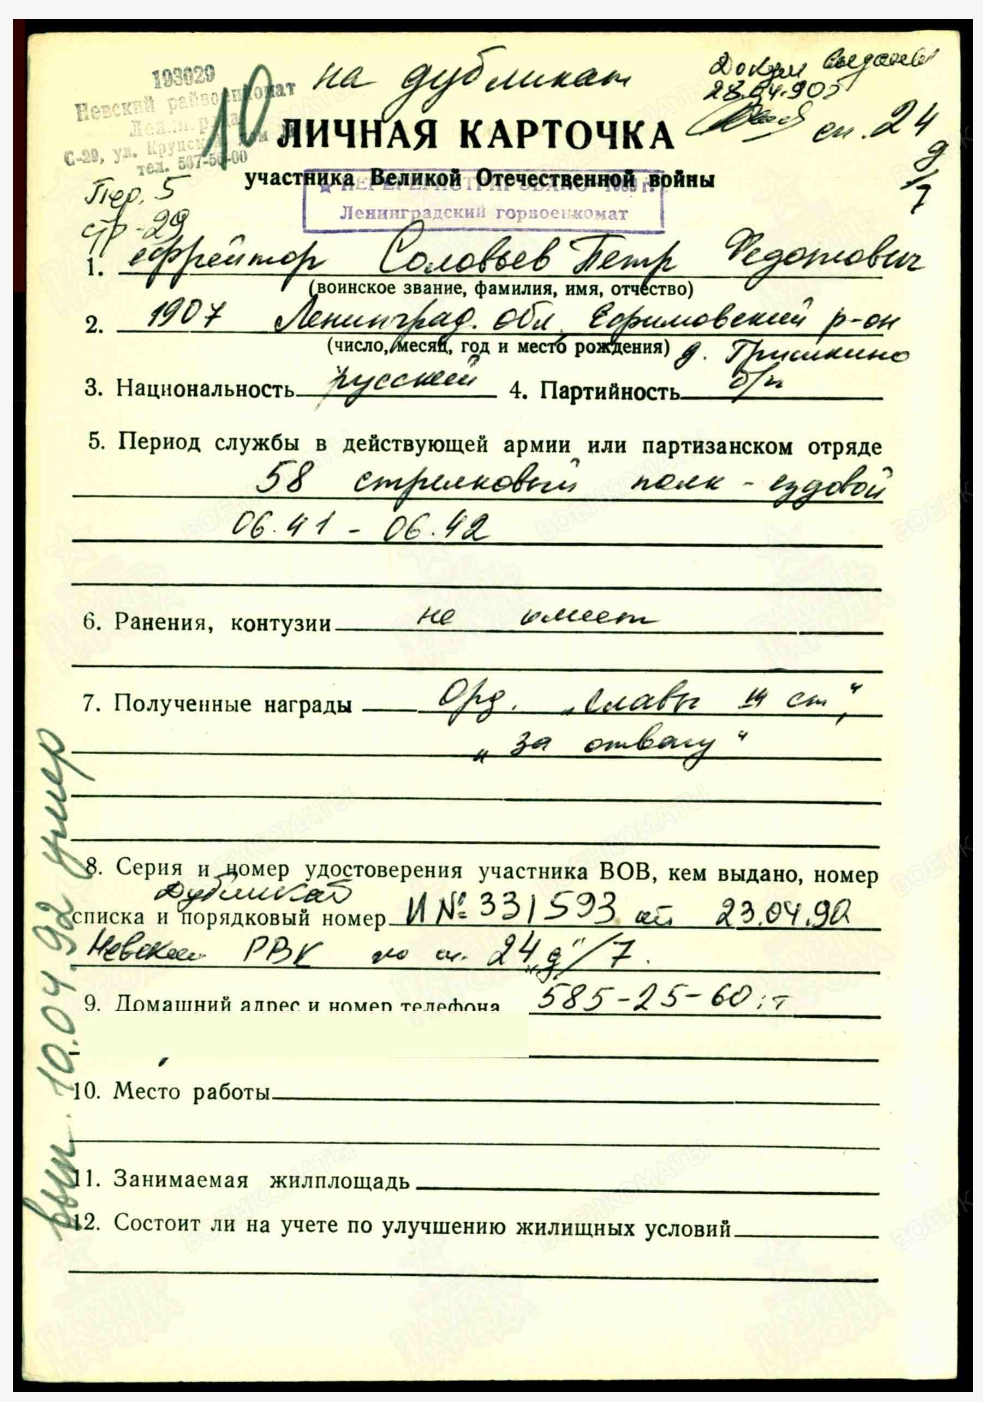 193029
Невский райвоенкомат
Ленинграда
С-29, ул. Крупской, дом
тел. 567-56-00
10
на дубликат
Докум
28.04.90г
сп. 24
д/7
ЛИЧНАЯ КАРТОЧКА
участника Великой Отечественной войны
Пер. 5
стр-29
★ ПЕРЕРЕГИСТРИРОВАНО 1985 г.
Ленинградский горвоенкомат
1. ефрейтор Соловьев Петр Федотович
(воинское звание, фамилия, имя, отчество)
2. 1907 Ленинград. обл. Ефимовский р-он
(число, месяц, год и место рождения) д. Гришкино
3. Национальность русский 4. Партийность б/п
5. Период службы в действующей армии или партизанском отряде
58 стрелковый полк - ездовой
06.41 - 06.42
6. Ранения, контузии не имеет
7. Полученные награды Орд. „Славы III ст",
„За отвагу"
8. Серия и номер удостоверения участника ВОВ, кем выдано, номер
Дубликат
списка и порядковый номер И № 331593 от 23.04.90
Невским РВК по сп. 24 „д"/7.
9. Домашний адрес и номер телефона 585-25-60
10. Место работы
11. Занимаемая жилплощадь
12. Состоит ли на учете по улучшению жилищных условий
вып. 10.04.92 умер
ВОЕНКОМАТЫ
ПАМЯТЬ НАРОДА